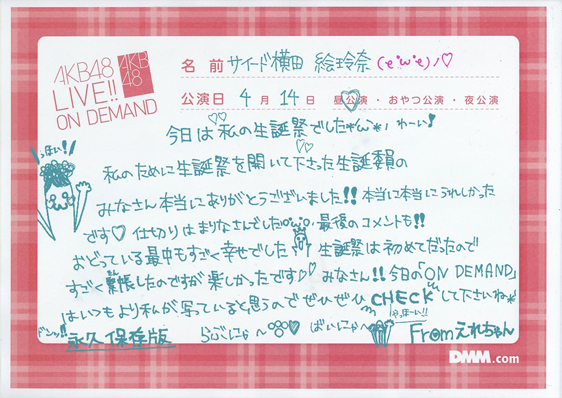 AKB48
LIVE!!
ON DEMAND
AKB
48
名 前 サイード横田 絵玲奈 (e'ω'e)ノ♡
公演日 4 月 14 日 昼公演・おやつ公演・夜公演
今日は私の生誕祭でした*ω*、わーい♪
っぽい!
私のために生誕祭を開いて下さった生誕委員の
みなさん本当にありがとうございました!! 本当に本当にうれしかった
です♡ 仕切りはまりなさんでした 最後のコメントも!!
おどっている最中もすごく幸せでした 生誕祭は初めてだったので
すごく緊張したのですが楽しかったです♪ みなさん!! 今日の「ON DEMAND」
はいつもより私が写っていると思うのでぜひぜひCHECKして下さいね*
ドンッ!! 永久保存版 らぶにゃ〜 ♡ ばいにゃ〜 っぽーい!! Fromえれちゃん
DMM.com